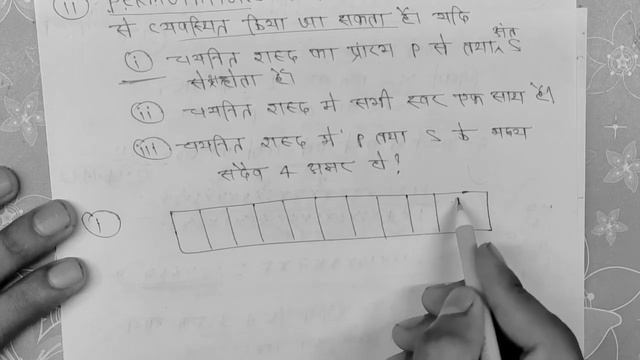 (ii)
से व्यवस्थित किया जा सकता है। यदि
(i) चयनित शब्द का प्रारंभ P से तथा अंत S
से होता है।
(ii) चयनित शब्द मे सभी स्वर एक साथ है।
(iii) चयनित शब्द में P तथा S के मध्य
सदैव 4 अक्षर हो?
(i)